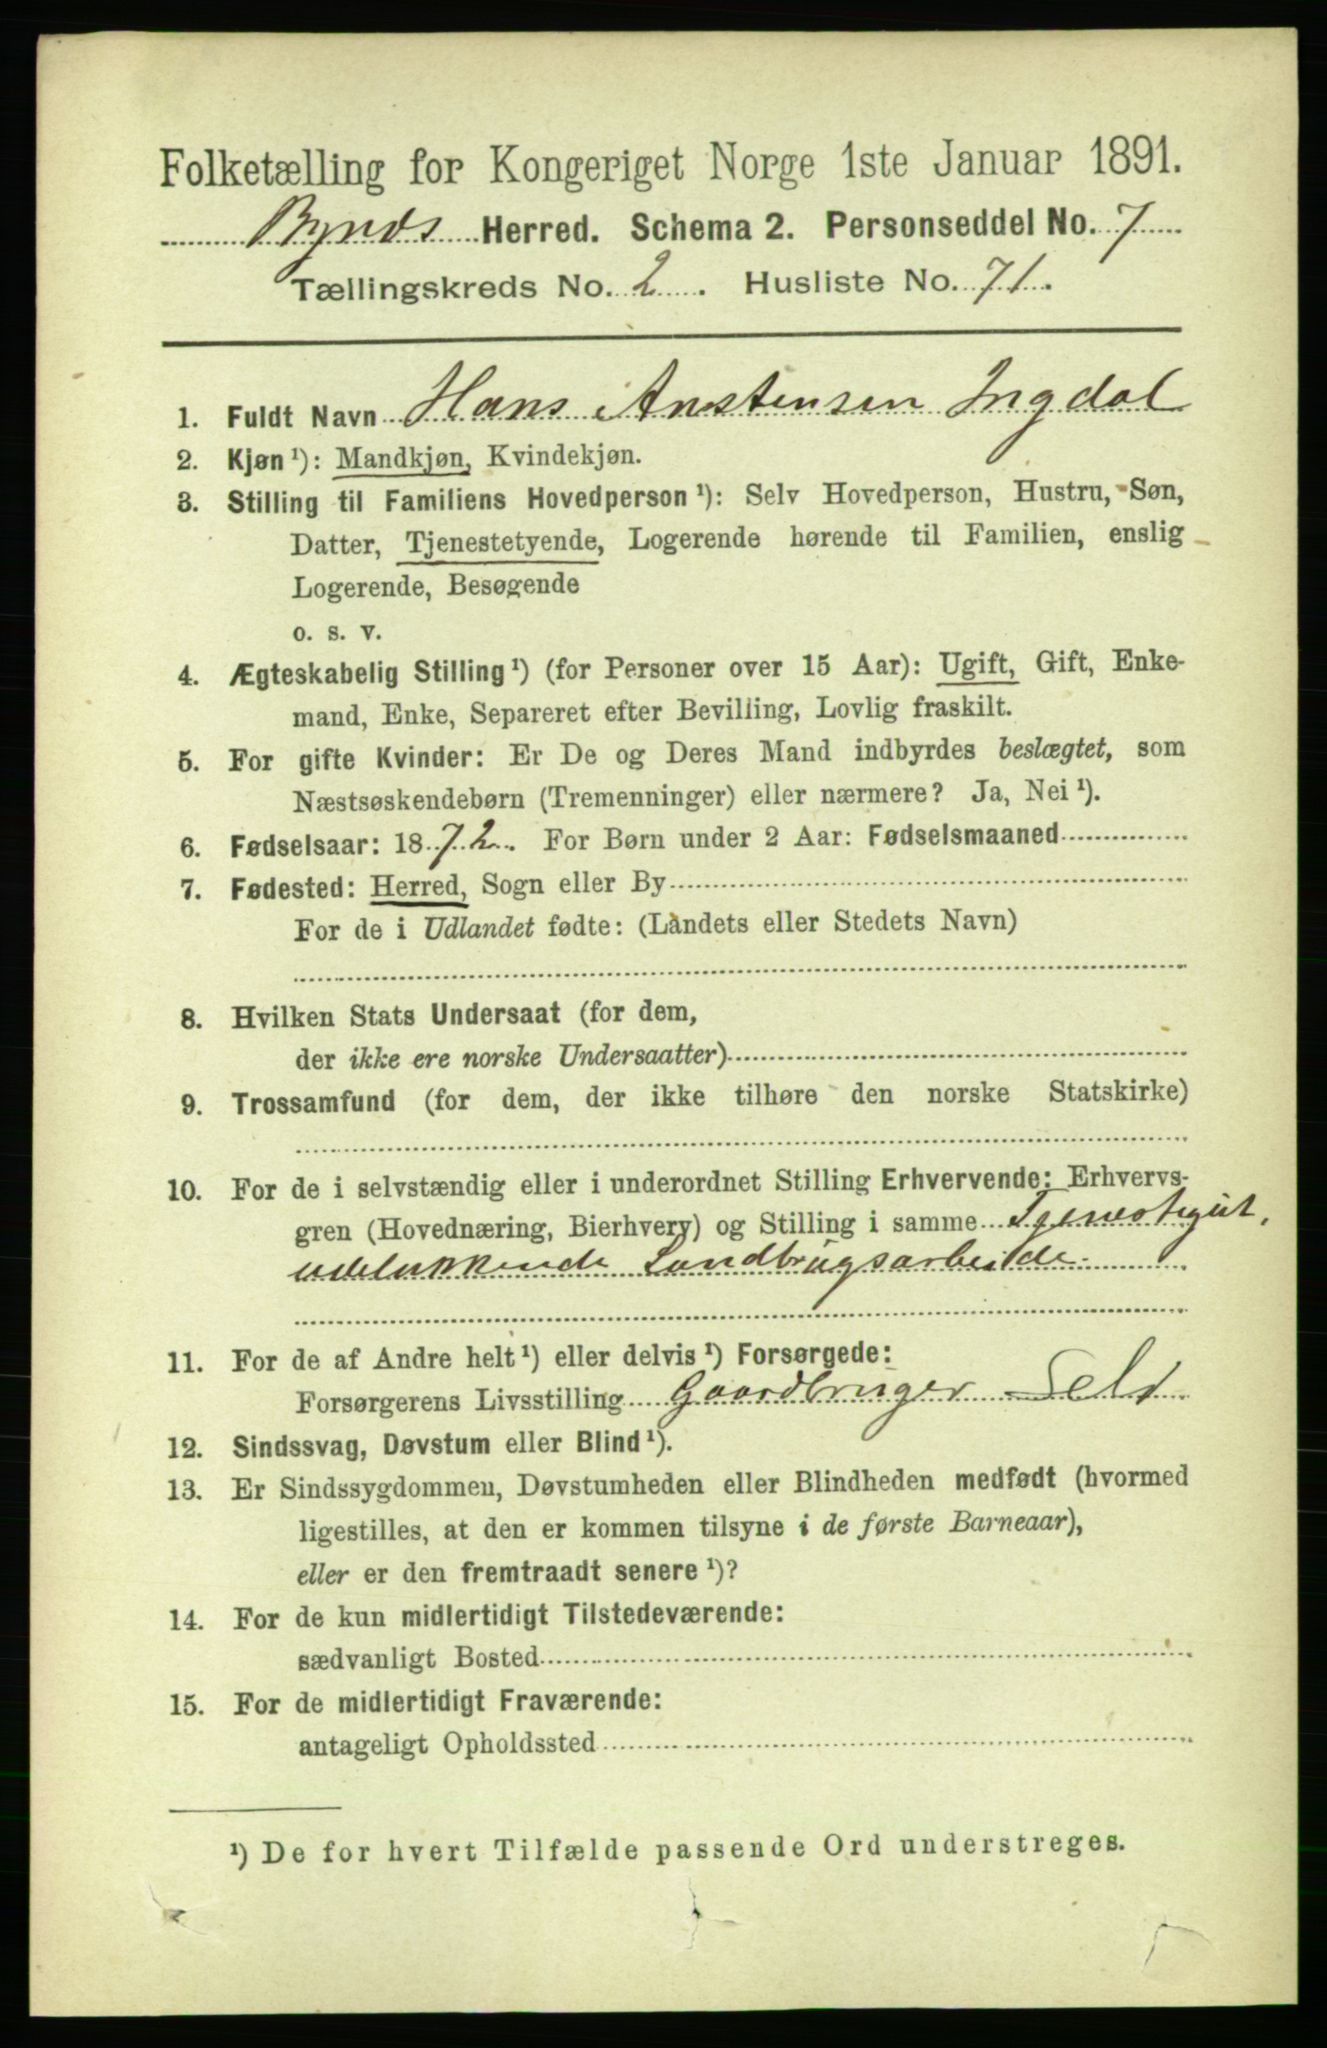 Folketælling for Kongeriget Norge 1ste Januar 1891.
Bynæs Herred. Schema 2. Personseddel No. 7
Tællingskreds No. 2. Husliste No. 71.
1. Fuldt Navn Hans Anstensen Ingdal
2. Kjøn ¹): Mandkjøn, Kvindekjøn.
3. Stilling til Familiens Hovedperson ¹): Selv Hovedperson, Hustru, Søn,
Datter, Tjenestetyende, Logerende hørende til Familien, enslig
Logerende, Besøgende
o. s. v.
4. Ægteskabelig Stilling ¹) (for Personer over 15 Aar): Ugift, Gift, Enke-
mand, Enke, Separeret efter Bevilling, Lovlig fraskilt.
5. For gifte Kvinder: Er De og Deres Mand indbyrdes beslægtet, som
Næstsøskendebørn (Tremenninger) eller nærmere? Ja, Nei ¹).
6. Fødselsaar: 1872. For Børn under 2 Aar: Fødselsmaaned
7. Fødested: Herred, Sogn eller By
For de i Udlandet fødte: (Landets eller Stedets Navn)
8. Hvilken Stats Undersaat (for dem,
der ikke ere norske Undersaatter)
9. Trossamfund (for dem, der ikke tilhøre den norske Statskirke)
10. For de i selvstændig eller i underordnet Stilling Erhvervende: Erhvervs-
gren (Hovednæring, Bierhverv) og Stilling i samme Tjenestegut,
udelukkende Landbrugsarbeide.
11. For de af Andre helt ¹) eller delvis ¹) Forsørgede:
Forsørgerens Livsstilling Gaardbruger Selv
12. Sindssvag, Døvstum eller Blind ¹).
13. Er Sindssygdommen, Døvstumheden eller Blindheden medfødt (hvormed
ligestilles, at den er kommen tilsyne i de første Barneaar),
eller er den fremtraadt senere ¹)?
14. For de kun midlertidigt Tilstedeværende:
sædvanligt Bosted
15. For de midlertidigt Fraværende:
antageligt Opholdssted
¹) De for hvert Tilfælde passende Ord understreges.